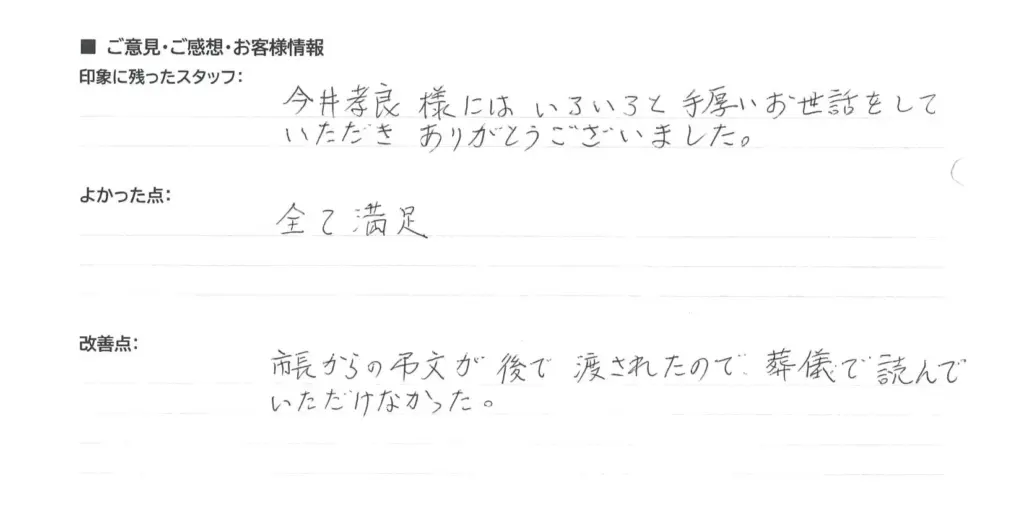 ■ ご意見・ご感想・お客様情報
印象に残ったスタッフ:
今井孝良様にはいろいろと手厚いお世話をして
いただきありがとうございました。
よかった点:
全て満足
改善点:
市長からの弔文が後で渡されたので、葬儀で読んで
いただけなかった。